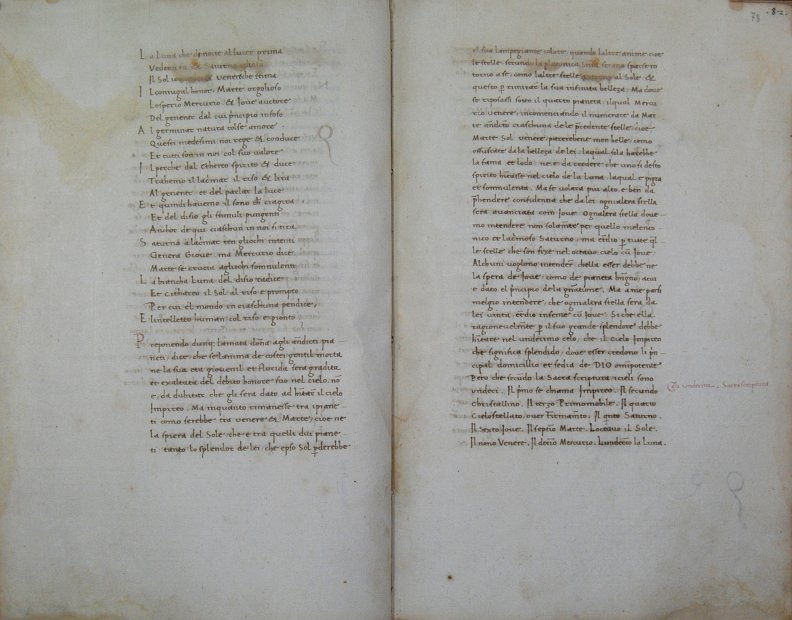 La Luna che di nocte al lucer prima
Vedersi &
Il Sol venere che stima
Il coniugal honor. Marte orgolioso
Lo sperio Mercurio & Jove auctore
Del generar dal cui principio infoso
Al germinar natura tolse amore.
Questi medesimi noi rege & conduce
Et tutti son in noi col suo valore
Il perche dal ethereo spirito & duce
Trahemo il lacrimar il riso & lira
Al generar et del parlar la luce
Et quindi havemo il sono
Et del disio gli stimuli pungenti
Anchor de qui ciaschun in noi si tira
Saturno a lacrimar ten gliochi intenti
Genera Giove ma Mercurio dice
Marte se crucia agliochi somnulenti
La biancha Luna del disio radice
Et cithareo il Sol al riso e prompto
Per cui el mondo in ciaschuna pendice,
E lintelletto human col riso e gionto
Preponendo dunq; lamata dona agli andicti pia
neti, dice che se lanima de costei gentil morta
ne la sua eta giovenil et florida sera gradita
et exaltata del debito honore suo nel cielo. nõ
e, da dubitar che gli sera dato ad hitar il cielo
Impireo. Ma inquanto rimanesse tra i piane
ti como serebbe tra venere & Marte, cioe ne
la spiera del Sole che e tra quelli dui piane
ti. tanto lo splendor de lei che epso Sol pderebbe
78 82
el suo lampegiante colore. quando laltre anime cioe
le stelle secundo la platonica serano sparse in
torno a se como laltre stelle al Sole &
questo p rimirar la sua infinita belleza. Ma dove
se riposassi sotto il quarto pianeta, ilqual Mercu
rio venere, incomenciando il numerare da Mar
te andrieto ciaschuna dele pcedente stelle, cioe
Marte Sol venere parerebene men belle, como
offuscate da la belleza de lei, laqual sola harebbe
la fama et lodo. ne e da credere che uno si desto
spirito hitasse nel cielo de la Luna, laqual e pigra
et somnulenta. Ma se volara piu alto e ben da
phendere confidentia che da lei ogni altra stella
sera avanciata com Jove. Ogni altra stella dove
mo intendere non solamte per quello melenco
nico et lacrimoso Saturno, ma etiãdio p tutte ql
le stelle che son fixe nel octavo cielo cu Jove.
Alchuni vogliono intender chella esser debbe ne
la spera de Jove como de pianeta benigno, acui
e dato el pncipio de la gnatione. Ma a me pare
melgio intendere, che ogni altra stella sera da
lei vinta etiãdio insieme cũ Jove. Si che ella
ragionevelmte p il suo grande splendore debbe
hitare nel undecimo celo, che il cielo Impireo
che significa splendido, dove esser credono li pn
cipal domicilio et sedia de DIO omnipotente
Pero che secundo la Sacra scriptura icieli sono
undeci. Il pmo se chiama Impireo. Il secundo
christallino. Il terzo Primo mobile. Il quarto
Cielo stellato, over Firmamto. Il qnto Saturno.
Il sexto Jove. Il septimo Marte. Loctavo il Sole.
Il nono Venere. Il decimo Mercurio. Lundecimo la Luna.
undecim Sacra scriptura